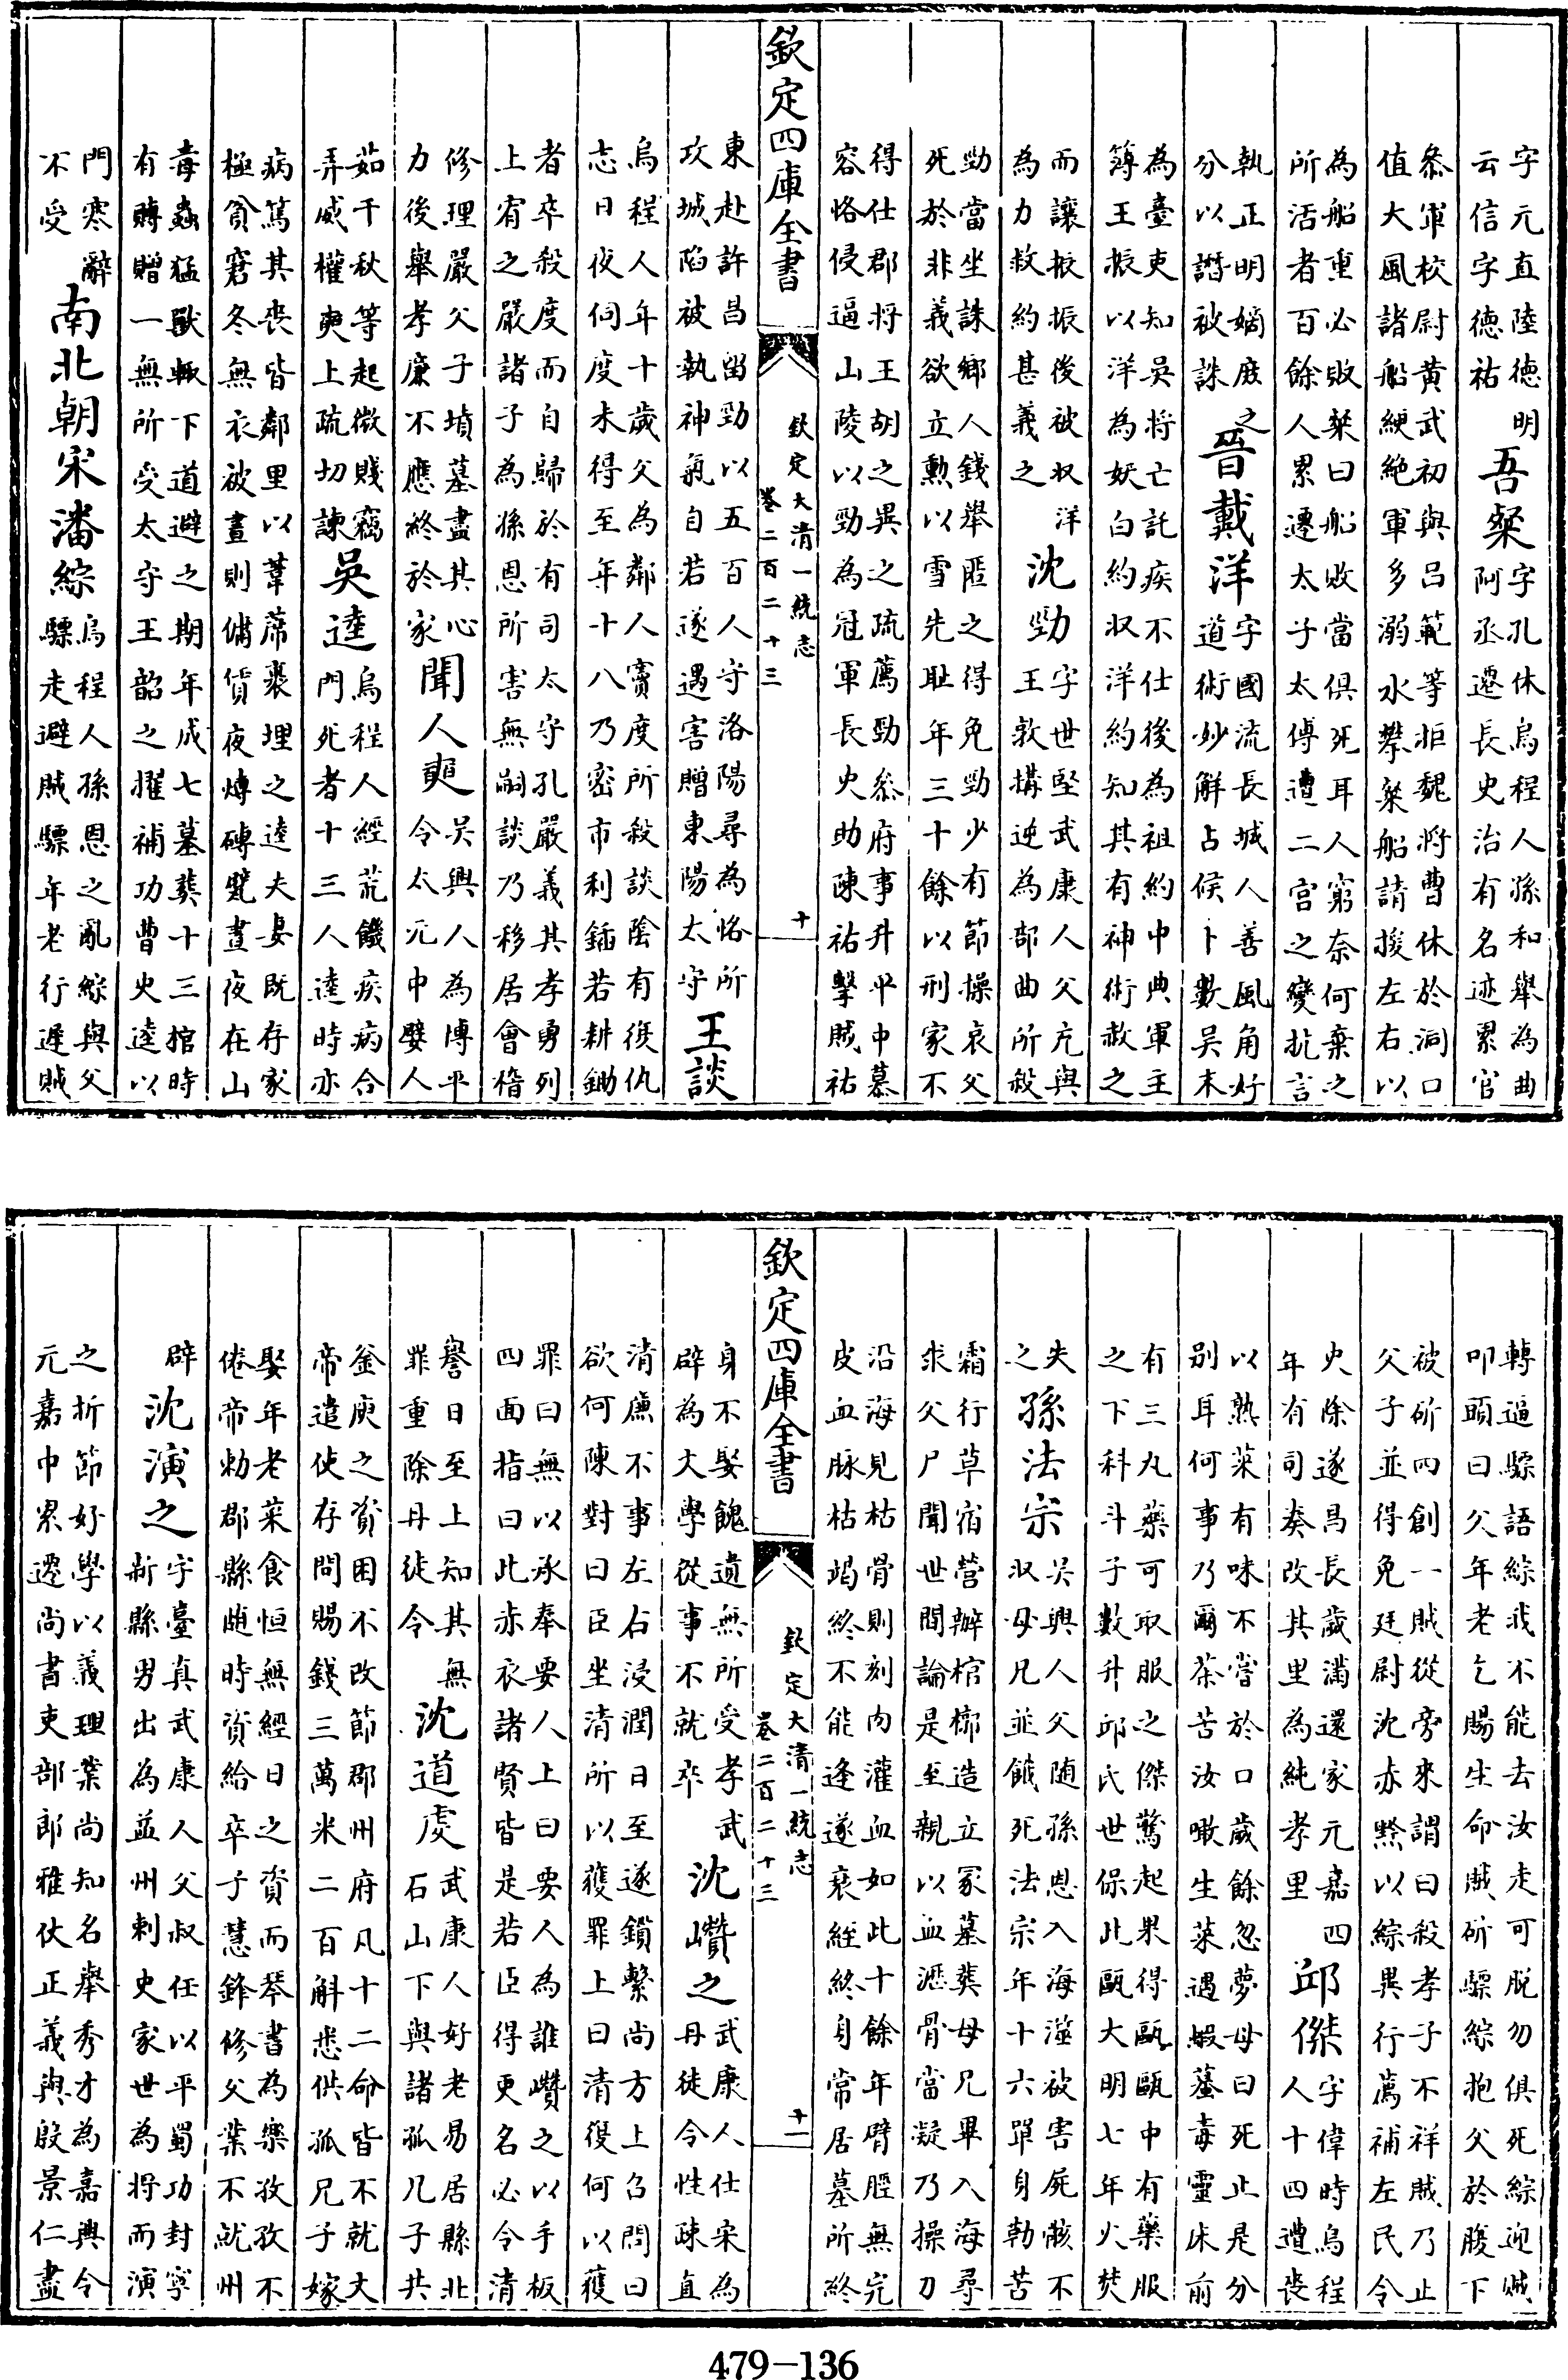 字元直陸德明
云信字德祐
吾粲
字孔休烏程人孫和舉為曲
阿丞遷長史治有名迹累官
叅軍校尉黃武初與呂範等拒魏將曹休於洞口
值大風諸船綆絶軍多溺水攀粲船請援左右以
為船重必敗粲曰船敗當俱死耳人窮奈何棄之
所活者百餘人累遷太子太傅遭二宫之變抗言
執正明嫡庶之
分以譛被誅
晉戴洋
字國流長城人善風角好
道術妙解占候卜數吳末
為臺吏知吳將亡託疾不仕後為祖約中典軍主
簿王振以洋為妖白約收洋約知其有神術赦之
而讓振振後被收洋
為力救約甚義之
沈勁
字世堅武康人父充與
王敦搆逆為部曲所殺
勁當坐誅鄉人錢舉匿之得免勁少有節操哀父
死於非義欲立勲以雪先耻年三十餘以刑家不
得仕郡將王胡之異之疏薦勁叅府事升平中慕
容恪侵逼山陵以勁為冠軍長史助陳祐擊賊祐
欽定四庫全書
欽定大清一統志
卷二百二十三
十
東赴許昌留勁以五百人守洛陽尋為恪所
攻城陷被執神氣自若遂遇害贈東陽太守
王談
烏程人年十歲父為鄰人竇度所殺談陰有復仇
志日夜伺度未得至年十八乃密市利鍤若耕鋤
者卒殺度而自歸於有司太守孔嚴義其孝勇列
上宥之嚴諸子為孫恩所害無嗣談乃移居會稽
修理嚴父子墳墓盡其心
力後舉孝廉不應終於家
聞人奭
吳興人為博平
令太元中嬖人
茹千秋等起微賤竊
弄威權奭上疏切諫
吳逵
烏程人經荒饑疾病合
門死者十三人逵時亦
病篤其喪皆鄰里以葦蓆裹埋之逵夫妻既存家
極貧窘冬無衣被晝則傭賃夜燒磚甓晝夜在山
毒蟲猛獸輒下道避之期年成七墓葬十三棺時
有賻贈一無所受太守王韶之擢補功曹史逵以
門寒辭
不受
南北朝宋潘綜
烏程人孫恩之亂綜與父
驃走避賊驃年老行遲賊
轉逼驃語綜我不能去汝走可脫勿俱死綜迎賊
叩頭曰父年老乞賜生命賊斫驃綜抱父於腹下
被斫四創一賊從旁來謂曰殺孝子不祥賊乃止
父子並得免廷尉沈赤黔以綜異行薦補左民令
史除遂昌長歲滿還家元嘉四
年有司奏改其里為純孝里
邱傑
字偉時烏程
人十四遭喪
以熟菜有味不嘗於口歲餘忽夢母曰死止是分
別耳何事乃爾荼苦汝噉生菜遇蝦蟇毒靈床前
有三丸藥可取服之傑驚起果得甌甌中有藥服
之下科斗子數升邱氏世保此甌大明七年火焚
失
之
孫法宗
吳興人父隨孫恩入海澨被害屍骸不
收母兄並餓死法宗年十六單身勤苦
霜行草宿營辦棺槨造立冢墓葬母兄畢入海尋
求父尸聞世間論是至親以血瀝骨當凝乃操刀
沿海見枯骨則刻肉灌血如此十餘年臂脛無完
皮血脈枯竭終不能逢遂衰絰終身常居墓所終
欽定四庫全書
欽定大清一統志
卷二百二十三
十一
身不娶餽遺無所受孝武
辟為大學從事不就卒
沈巑之
武康人仕宋為
丹徒令性疎直
清亷不事左右浸潤日至遂鎖繫尚方上召問曰
欲何陳對曰臣坐清所以獲罪上曰清復何以獲
罪曰無以承奉要人上曰要人為誰巑之以手板
四面指曰此赤衣諸賢皆是若臣得更名必令清
譽日至上知其無
罪重除丹徒令
沈道虔
武康人好老易居縣北
石山下與諸孤兄子共
釜庾之資困不改節郡州府凡十二命皆不就文
帝遣使存問賜錢三萬米二百斛悉供孤兄子嫁
娶年老菜食恒無經日之資而琴書為樂孜孜不
倦帝勅郡縣隨時資給卒子慧鋒修父業不就州
辟
沈演之
字臺真武康人父叔任以平蜀功封寧
新縣男出為益州刺史家世為將而演
之折節好學以義理業尚知名舉秀才為嘉興令
元嘉中累遷尚書吏部郎雅仗正義與殷景仁盡
479-136